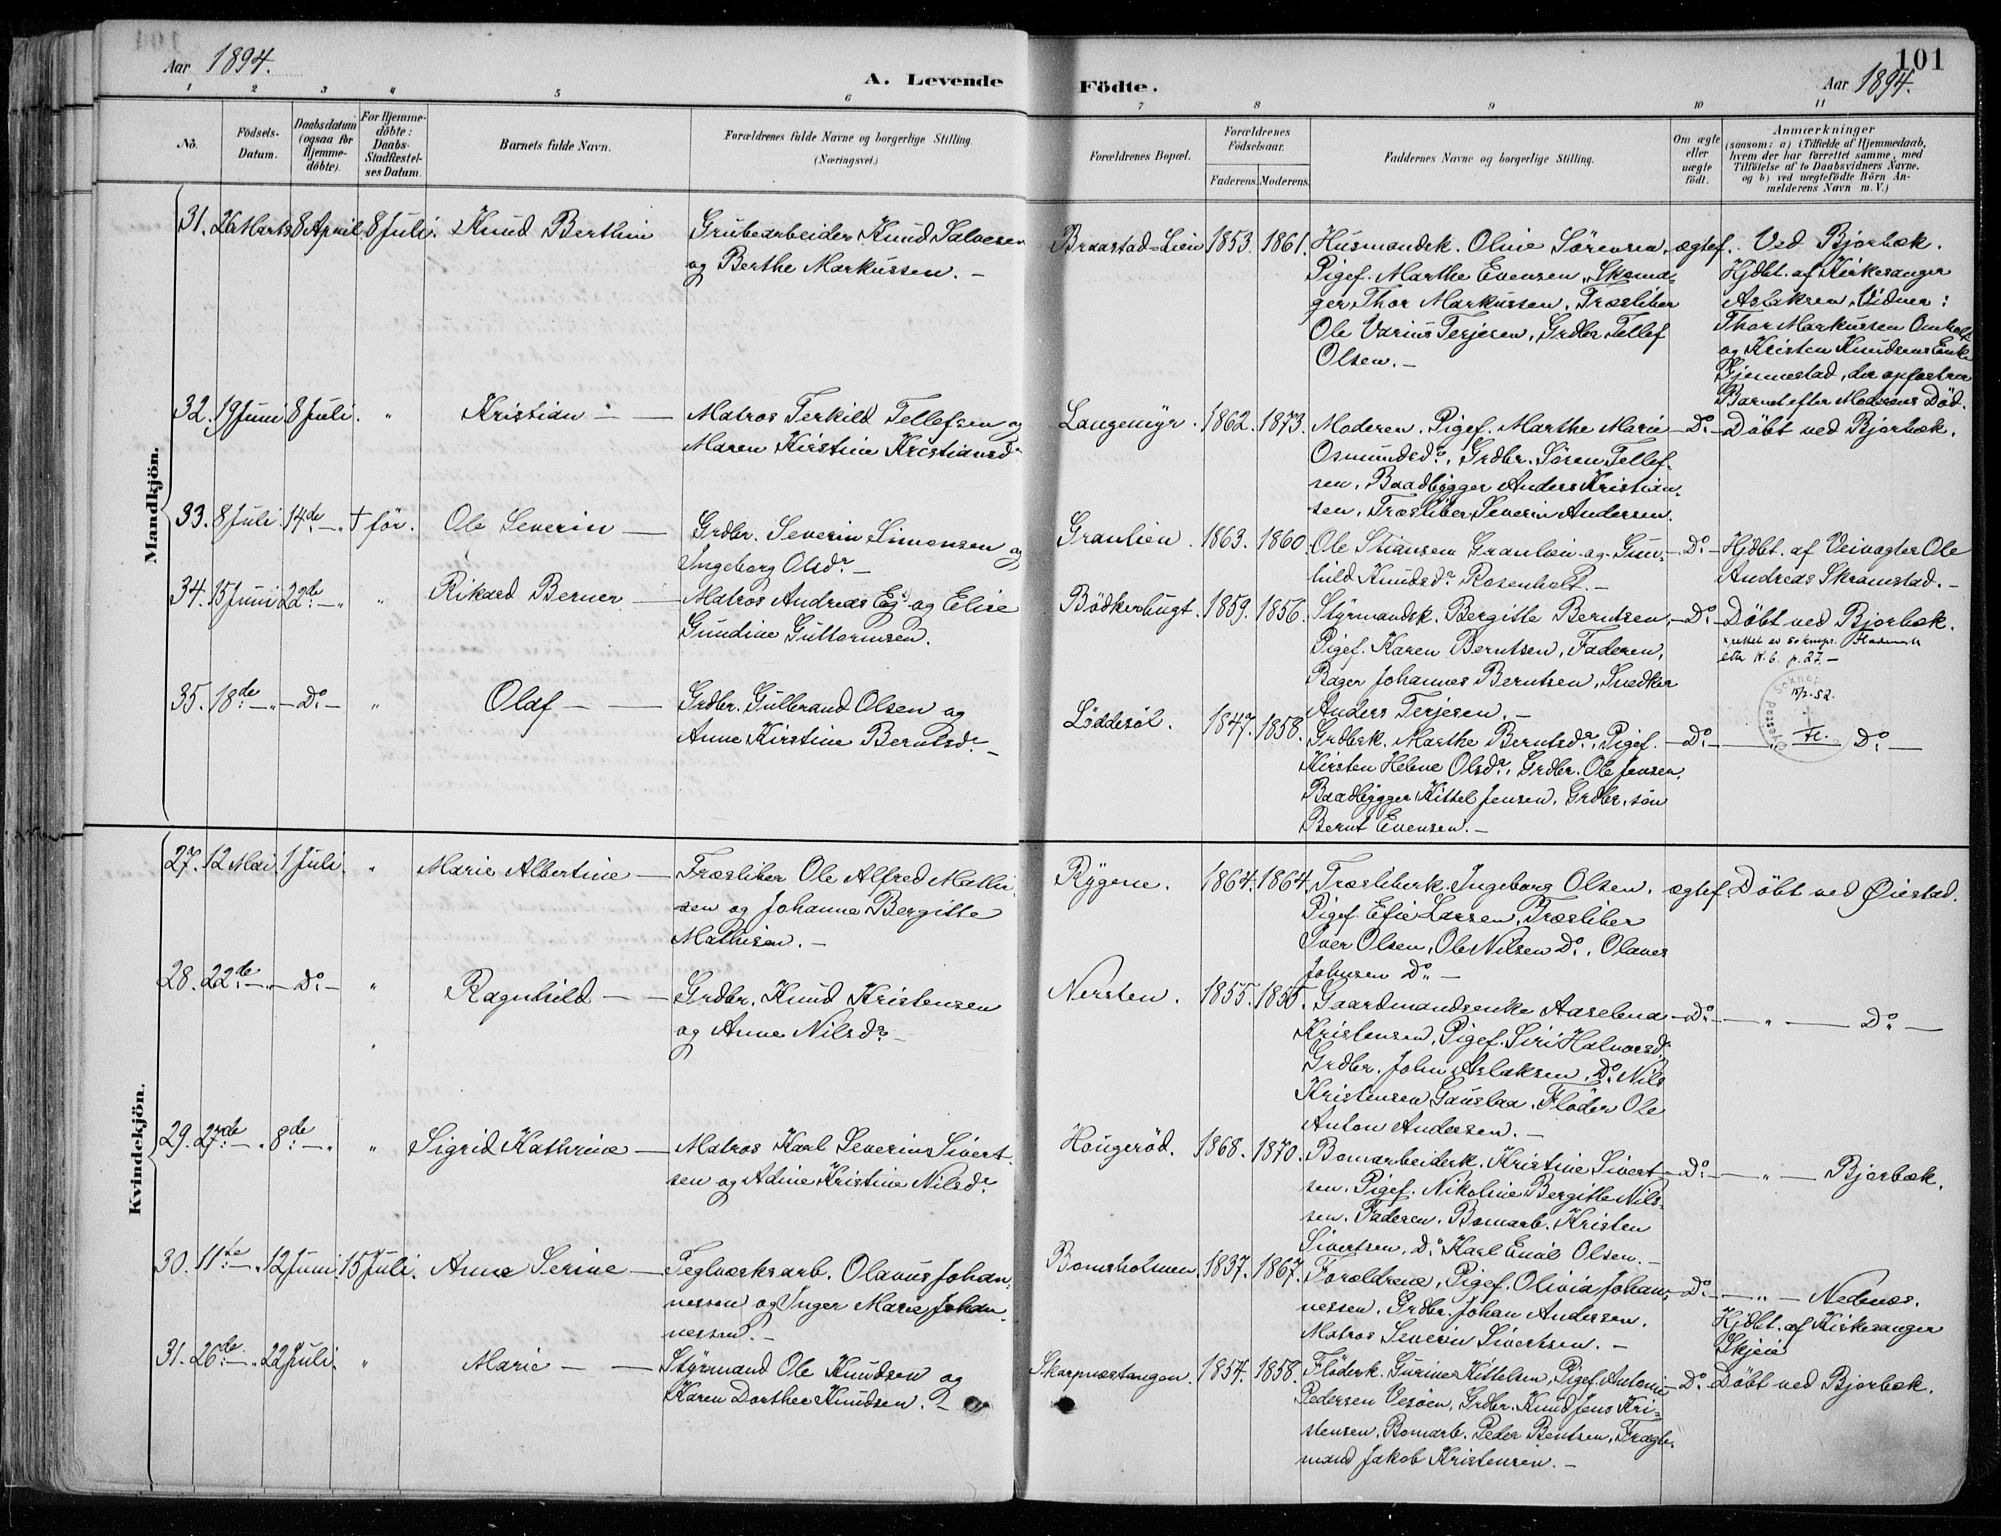 Aar 1894.
A. Levende Födte.
Aar 1894.
101
1 2 3 4 5 6 7 8 9 10 11
No.
Födsels-Datum.
Daabsdatum (ogsaa for Hjemme-döbte).
For Hjemme-döbte: Daabs-Stadfæstel-ses Datum.
Barnets fulde Navn.
Forældrenes fulde Navne og borgerlige Stilling.
(Næringsvei.)
Forældrenes Bopæl.
Forældrenes Födselsaar.
Faderens. Moderens.
Faddernes Navne og borgerlige Stilling.
Om ægte eller uægte födt.
Anmærkninger
(saasom: a) i Tilfælde af Hjemmedaab,
hvem der har forrettet samme, med
Tilföielse af to Daabsvidners Navne,
og b) ved uægtefödte Börn An-
melderens Navn m. V.)
Mandkjön.
31. 26 Marts 8 April 8 Juli. Knud Berthin
Grubearbeider Knud Salvesen
og Berthe Markussen. —
Braastad-Lien 1853. 1861.
Husmandsk. Oline Sörensen,
Pigef. Marthe Evensen, Skoma-
ger Thor Markussen, Træsliber
Ole Varius Terjesen, Grdbr. Tellef
Olsen. —
ægtef.
Ved Bjorbæk.
Hjdbt. af Kirkesanger
Aslaksen. Vidner:
Thor Markussen Omholt
og Kristen Knudsens Enke
Fjennestad, der opfostrer
Barnet efter Moderens Död.
32. 19 Juni 8 Juli. " Kristian — —
Matros Terkild Tellefsen og
Maren Kirstine Kristiansdr
Langemyr. 1862. 1873.
Moderen. Pigef. Marthe Marie
Osmundsdr., Grdbr. Sören Tellef-
sen, Baadbygger Anders Kristian-
sen, Træsliber Severin Andersen.
— Do. —
Döbt ved Bjorbæk.
33. 8 Juli 14de — " † för. Ole Severin —
Grdbr. Severin Simonsen og
Ingeborg Olsdr. —
Granlien. 1863. 1860
Ole Stiansen Granlien og Gun-
hild Knudsdr. Rosenholt. —
— Do. —
Hjdbt. af Veivogter Ole
Andreas Skramstad. —
34. 15 Juni 22de — " " Rikard Berner —
Matros Andreas Eg og Elise
Gundine Guttormsen.
Bödkerbugt. 1859. 1856.
Styrmandsk. Bergitte Berntsen,
Pigef. Karen Berntsen, Faderen,
Bager Johannes Berntsen, Snedker
Anders Terjesen. —
— Do. —
Döbt ved Bjorbæk.
rettet av soknepr.
etter K. 6. p. 27. —
52.
35. 18de — " — Do. — " Olaf — —
Grdbr. Gulbrand Olsen og
Anne Kirstine Berntsdr. —
Löddesöl. 1847. 1858.
Grdbrsk. Marthe Berntsdr., Pigef.
Kirsten Helene Olsdr., Grdbr. Ole Jensen,
Baadbygger Kittel Jensen, Grdbr. sön
Bernt Evensen. —
— Do. — Fl. Do. —
Kvindekjön.
27. 12 Mai. 1 Juli. " Marie Albertine —
Træsliber Ole Alfred Mathi-
sen og Johanne Bergitte
Mathisen. —
Rygene. 1864. 1864.
Træsliberk. Ingeborg Olsen,
Pigef. Efie Larsen, Træsliber
Iver Olsen, Ole Nilsen Do., Olaves
Johnsen Do. —
ægtef.
Döbt ved Öiestad.
28. 22de — " — Do. — " Ragnhild — —
Grdbr. Knud Kristensen
og Anne Nilsdr. —
Nersten. 1855. 1855.
Gaardmandsenke Aaselena
Kristensen, Pigef. Siri Halvorsdr.
Grdbr. John Aslaksen, Do. Nils
Kristensen Gauslaa, Flöder Ole
Anton Andersen. —
— Do. — " — Do. —
29. 27de — " 8de — " " Sigrid Kathrine —
Matros Karl Severin Sivert-
sen og Adine Kristine Nilsdr.
Hougeröd. 1868. 1870.
Bomarbeiderk. Kristine Sivert-
sen, Pigef. Nikoline Bergitte Nils-
sen, Faderen, Bomarb. Kristen
Sivertsen, Do. Karl Emil Olsen. —
— Do. — " — Bjorbæk.
30. 11te — " 12 Juni. 15 Juli. Anne Serine —
Teglværksarb. Olavus Johan-
nessen og Inger Marie Johan-
nessen. —
Bomsholmen. 1837. 1867.
Forældrene, Pigef. Olivia Johan-
nessen, Grdbr. Johan Andersen,
Matros Severin Sivertsen. —
— Do. — " — Nedenes.
Hjdbt. af Kirkesanger
Skjeie
31. 26de — " 22 Juli. " Marie — —
Styrmand Ole Knudsen og
Karen Dorthee Knudsen. —
Skarpnæstangen. 1854. 1858.
Flöderk. Gurine Kittelsen, Pigef. Antonie
Pedersen Vesöen, Grdbr. Knud Jens Kri-
stensen, Bomarb. Peder Bentsen, Fragte-
mand Jakob Kristensen. —
— Do. —
Döbt ved Bjorbæk.